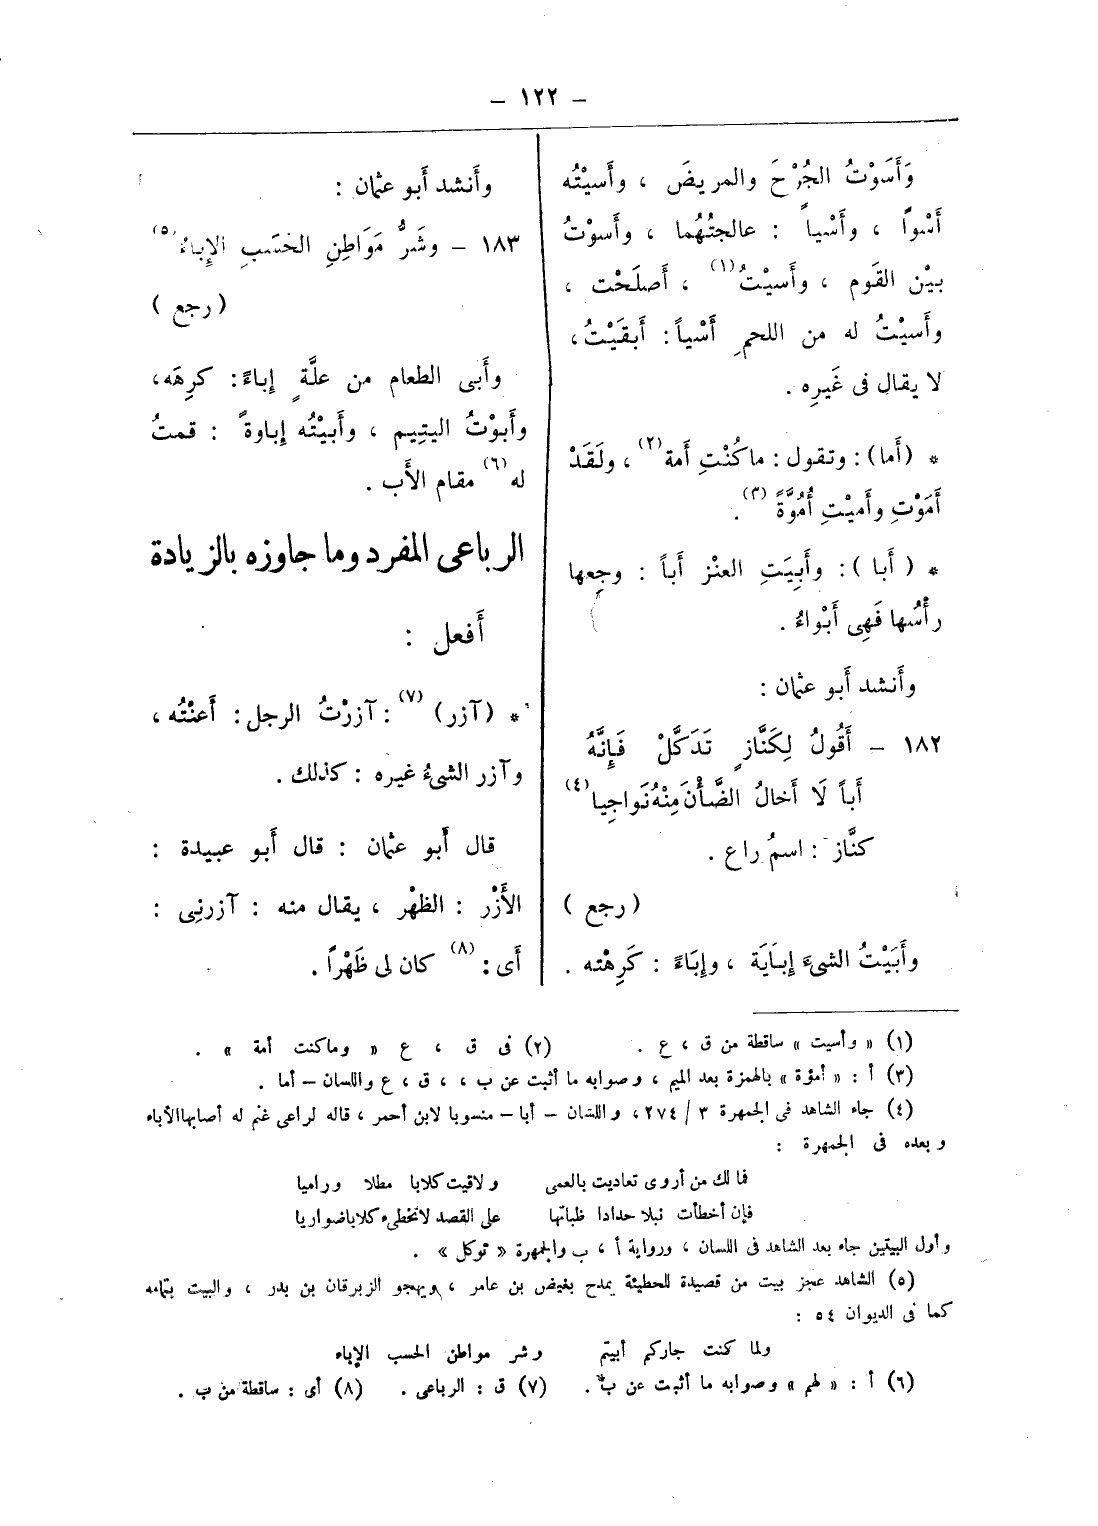 – ١٢٢ –
وَأَسَوْتُ الجُرْحَ والمريضَ ، وأَسيْتُه
أَسْواً ، وأَسْياً : عالجتُهُما ، وأَسوْتُ
بيْن القَوم ، وأَسيْتُ (١) ، أَصلَحْت ،
وأَسيْتُ له من اللحمِ أَسْياً : أَبقَيْتُ ،
لا يقال فى غَيرِه .
* (أَما) : وتقول : ماكُنْتِ أَمة (٢) ، ولَقَدْ
أَمَوْتِ وأَميْتِ أُمُوَّةً (٣) .
* ( أَبا ) : وأَبِيَتِ العنْز أَباً : وجِعها
رأْسُها فَهِى أَبْواءُ .
وأَنشد أَبو عثمان :
١٨٢ – أَقُولُ لِكَنَّازٍ تَدَكَّلْ فَإِنَّهُ
أَباً لَا أَخالُ الضَّأْنَ مِنْهُ نَواجِيا (٤)
كنَّاز : اسمُ راع .
( رجع )
وأَبَيْتُ الشىءَ إِبَايَة ، وإِبَاءً : كَرِهْته .
وأَنشد أَبو عثمان :
١٨٣ – وشَرُّ مَوَاطِنِ الحَسَبِ الإِباءُ (٥)
( رجع )
وأَبى الطعام من علَّةٍ إِباءً : كرِهَه ،
وأَبوْتُ اليتِيم ، وأَبيْتُه إِباوةً : قمتُ
له (٦) مقام الأَب .
الرباعى المفرد وما جاوزه بالزيادة
أَفعل :
* (آزر) (٧) : آزرْتُ الرجل : أَعنْتُه ،
وآزر الشىءُ غيره : كذلك .
قال أَبو عثمان : قال أَبو عبيدة :
الأَزْر : الظهْر ، يقال منه : آزرنِى :
أَى : (٨) كان لى ظَهْراً .
(١) « وأسيت » ساقطة من ق ، ع . (٢) فى ق ، ع « وماكنت أمة » .
(٣) أ : « أمؤة » بالهمزة بعد الميم ، وصوابه ما أثبت عن ب ، ، ق ، ع واللسان – أما .
(٤) جاء الشاهد فى الجمهرة ٣ / ٢٧٤ ، واللسان – أبا – منسوبا لابن أحمر ، قاله لراعى غنم له أصابها الأباء
وبعده فى الجمهرة :
فما لك من أروى تعاديت بالعمى ولاقيت كلابا مطلا وراميا
فإن أخطأت نبلا حدادا ظباتها على القصد لا تخطىء كلابا ضواريا
وأول البيتين جاء بعد الشاهد فى اللسان ، ورواية أ ، ب والجمهرة « توكل » .
(٥) الشاهد عجز بيت من قصيدة للحطيئة يمدح بغيض بن عامر ، ويهجو الزبرقان بن بدر ، والبيت بتمامه
كما فى الديوان ٥٤ :
ولما كنت جاركم أبيتم وشر مواطن الحسب الإباء
(٦) أ : « لهم » وصوابه ما أثبت عن ب . (٧) ق : الرباعى . (٨) أى : ساقطة من ب .